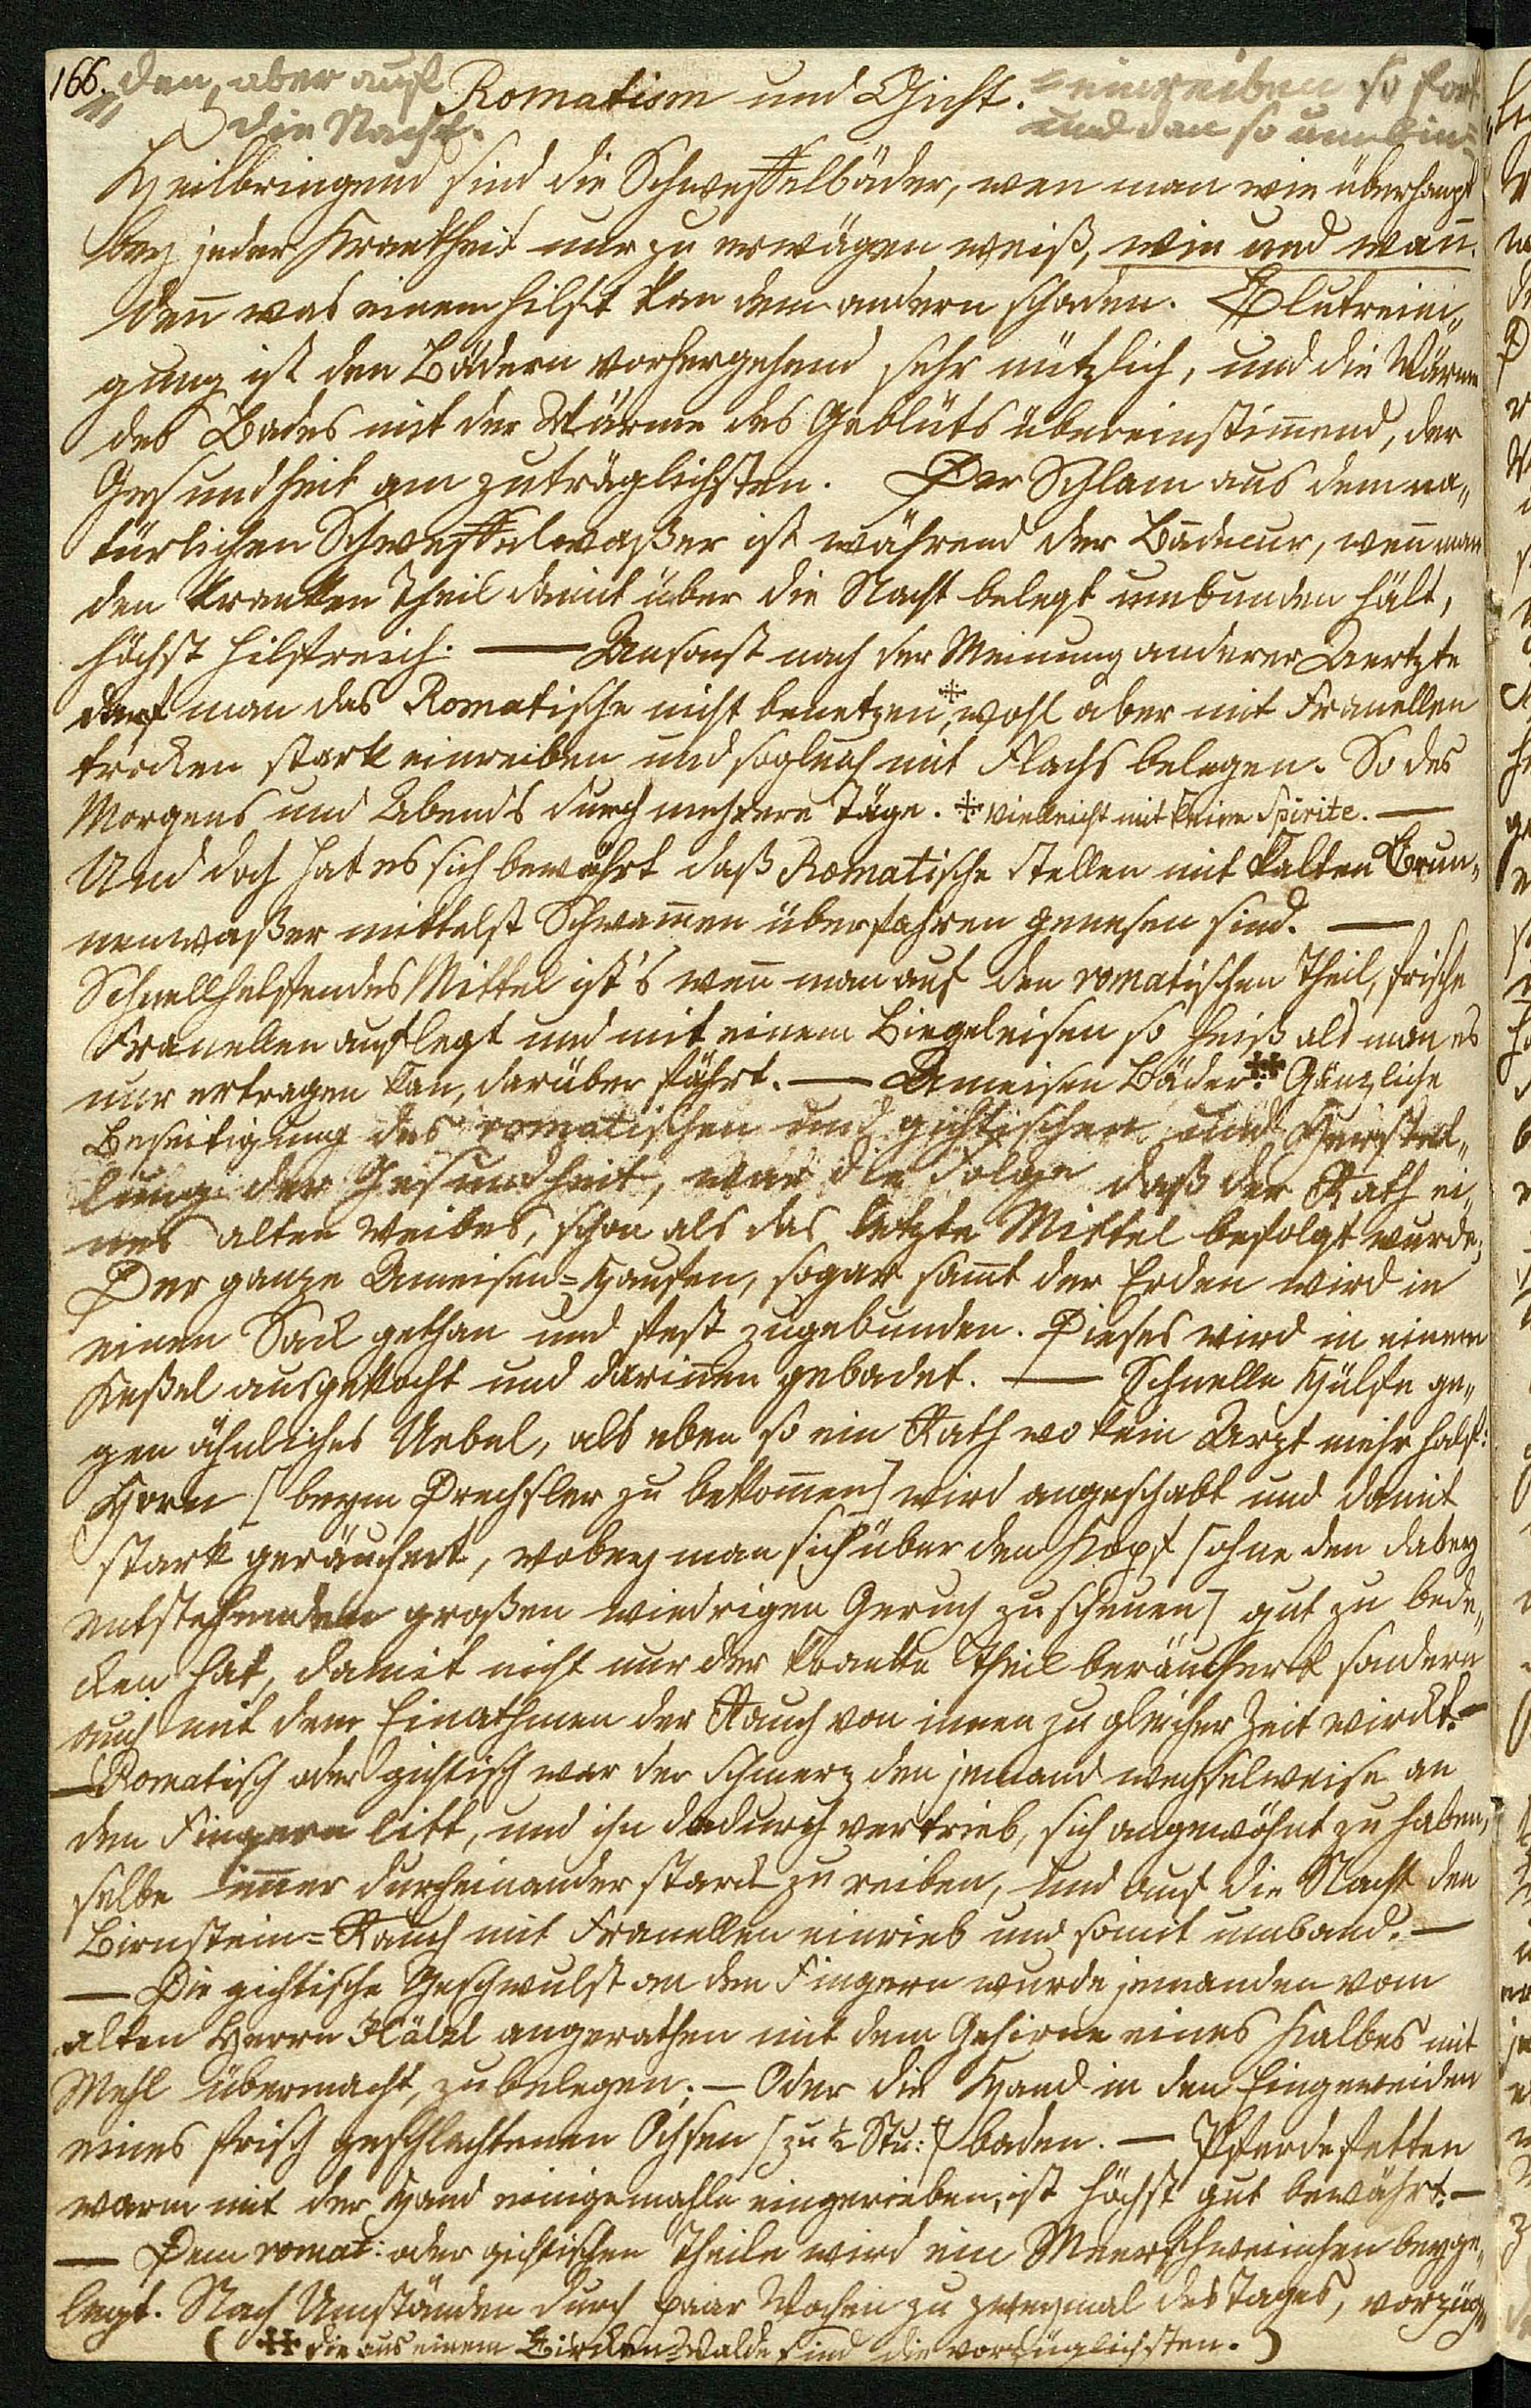 166. den, aber auf Romatism und Gicht. = einreiben so fort
die Nacht. und dan so umbin=
Heilbringend sind die Schweffelbäder, wen man wie überhaupt
bey jeder Krankheit nur zu erwägen weiß, wie und wan̄.
den̄ was einem hilft kan dem andern schaden. Blutreini„
gung ist den Bädern vorhergehend sehr nützlich, und die Wärme
des Bades mit der Wärme des Geblüts übereinstim̄end, der
Gesundheit am zuträglichsten. Der Schlam aus dem na„
türlichen Schweffelwaßer ist während der Badecur, wen̄ man
den kranken Theil damit über die Nacht belegt umbunden hält,
höchst hilfreich. — Ansonst nach der Meinung anderer Aertzte
darf man das Romatische nicht benetzen*, wohl aber mit Franellen
trocken stark einreiben und sogleich mit Flachs belegen. So des
Morgens und Abends durch mehrere Täge. * vielleicht mit keine Spirite. —
Und doch hat es sich bewährt daß Romatische Stellen mit kalten Brun„
nenwaßer mittelst Schwam̄en überfahren genesen sind. —
Schnellhelfendes Mittel ist's wen̄ man auf den romatischen Theil, frische
Franellen auflegt und mit einem Biegeleisen so heiß als man es
nur ertragen kan, darüber fährt. — Ameisen Bäder.** Gänzliche
Beseitigung des romatischen und gichtischen und Herstel„
lung der Gesundheit, war die Folge daß der Rath ei„
nes alten Weibes, schon als das letzte Mittel befolgt wurde;
Der ganze Ameisen=Haufen, sogar sam̄t der Erden wird in
einen Sack gethan und fest zugebunden. Dieses wird in einem
Keßel ausgekocht und darin̄en gebadet. — Schnelle Hülfe ge„
gen ähnliches Uebel, als eben so ein Rath wo kein Arzt mehr half:
Horn [beym Drechsler zu bekom̄en] wird angeschabt und damit
stark geräuchert, wobey man sich über den Kopf [ohne den dabey
entstehenden großen wiedrigen Geruch zu scheuen] gut zu bede„
cken hat, damit nicht nur der kranke Theil beräuchert sondern
auch mit dem Einathmen der Rauch von innen zu gleicher Zeit wirckt. —
— Romatisch oder gichtisch war der Schmerz den jemand wechselweise an
den Fingern litt, und ihn dadurch vertrieb, sich angewöhnt zu haben,
selbe im̄er durcheinander starck zu reiben, und auf die Nacht den
Birnstein=Rauch mit Franellen einrieb und somit umband. —
— Die gichtische Geschwulst an den Fingern wurde jemanden vom
alten Herrn Hälzl angerathen mit dem Gehirne eines Kalbes mit
Mehl übermacht, zu belegen; — Oder die Hand in den Eingeweiden
eines frisch geschlachtenen Ochsen [zu ½ Stu:] baden. — Pferdefetten
warm mit der Hand einigemahle eingerieben, ist höchst gut bewährt. —
— Dem romat: oder gichtischen Theile wird ein Meerschweinchen beyge„
legt. Nach Umständen durch paar Wochen zu zweymal des Tages, vorzüg„
( ** die aus einem Bircken=Walde sind die vorzüglichsten. )